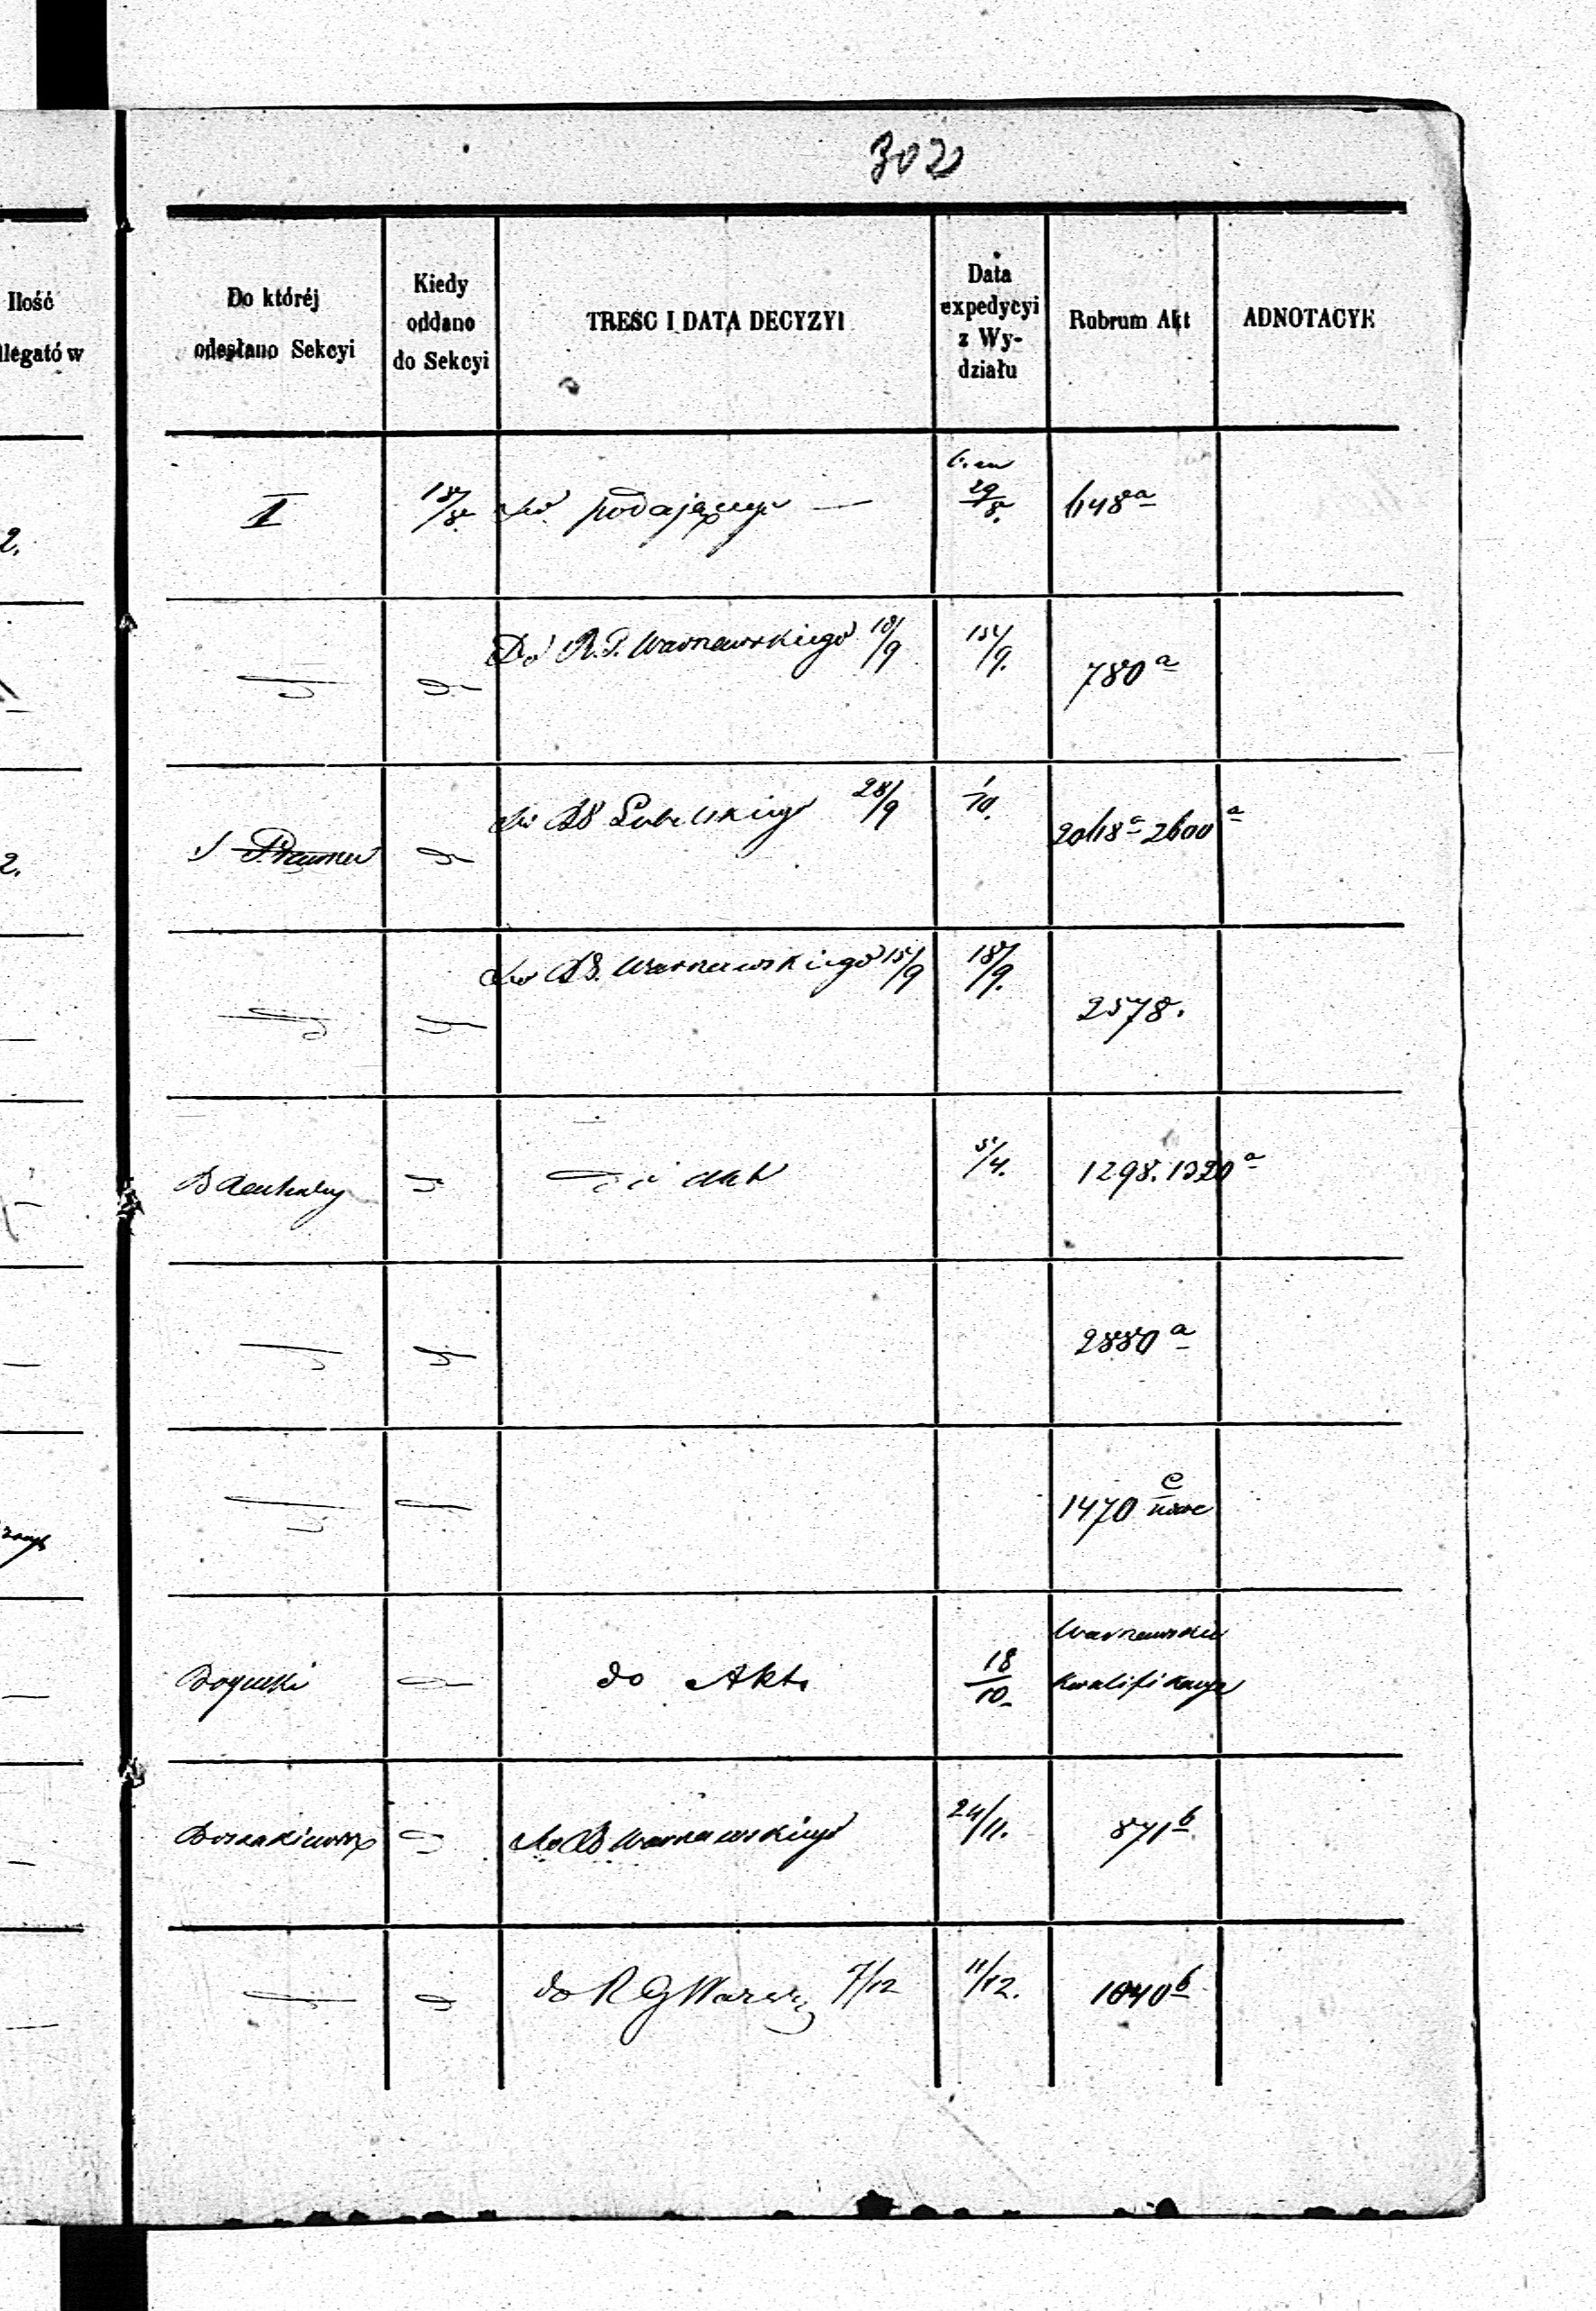 302
Ilość
llegatów
Do któréj
odesłano Sekcyi
Kiedy
oddano
do Sekcyi
TREŚĆ I DATA DECYZYI
Data
expedycyi
z Wy-
działu
Rubrum Akt
ADNOTACYE
2.
II
18/8
do podającego —
29/8.
648 a
Do R.G. Warszawskiego 10/9
15/9.
780 a
2.
do RG Lubelskiego 28/9
1/10.
2048 a 2600 a
do RG. Warszawskiego 15/9
18/9.
2578.
akt
5/4.
1298. 1320 a
2880 a
1470 e
Boguski
do Akt.
18/10
Warszawskie
Kwalifikacye
do RG Warszawskiego
24/11.
871 b
do R G Warsz 7/12
11/12.
1040 b